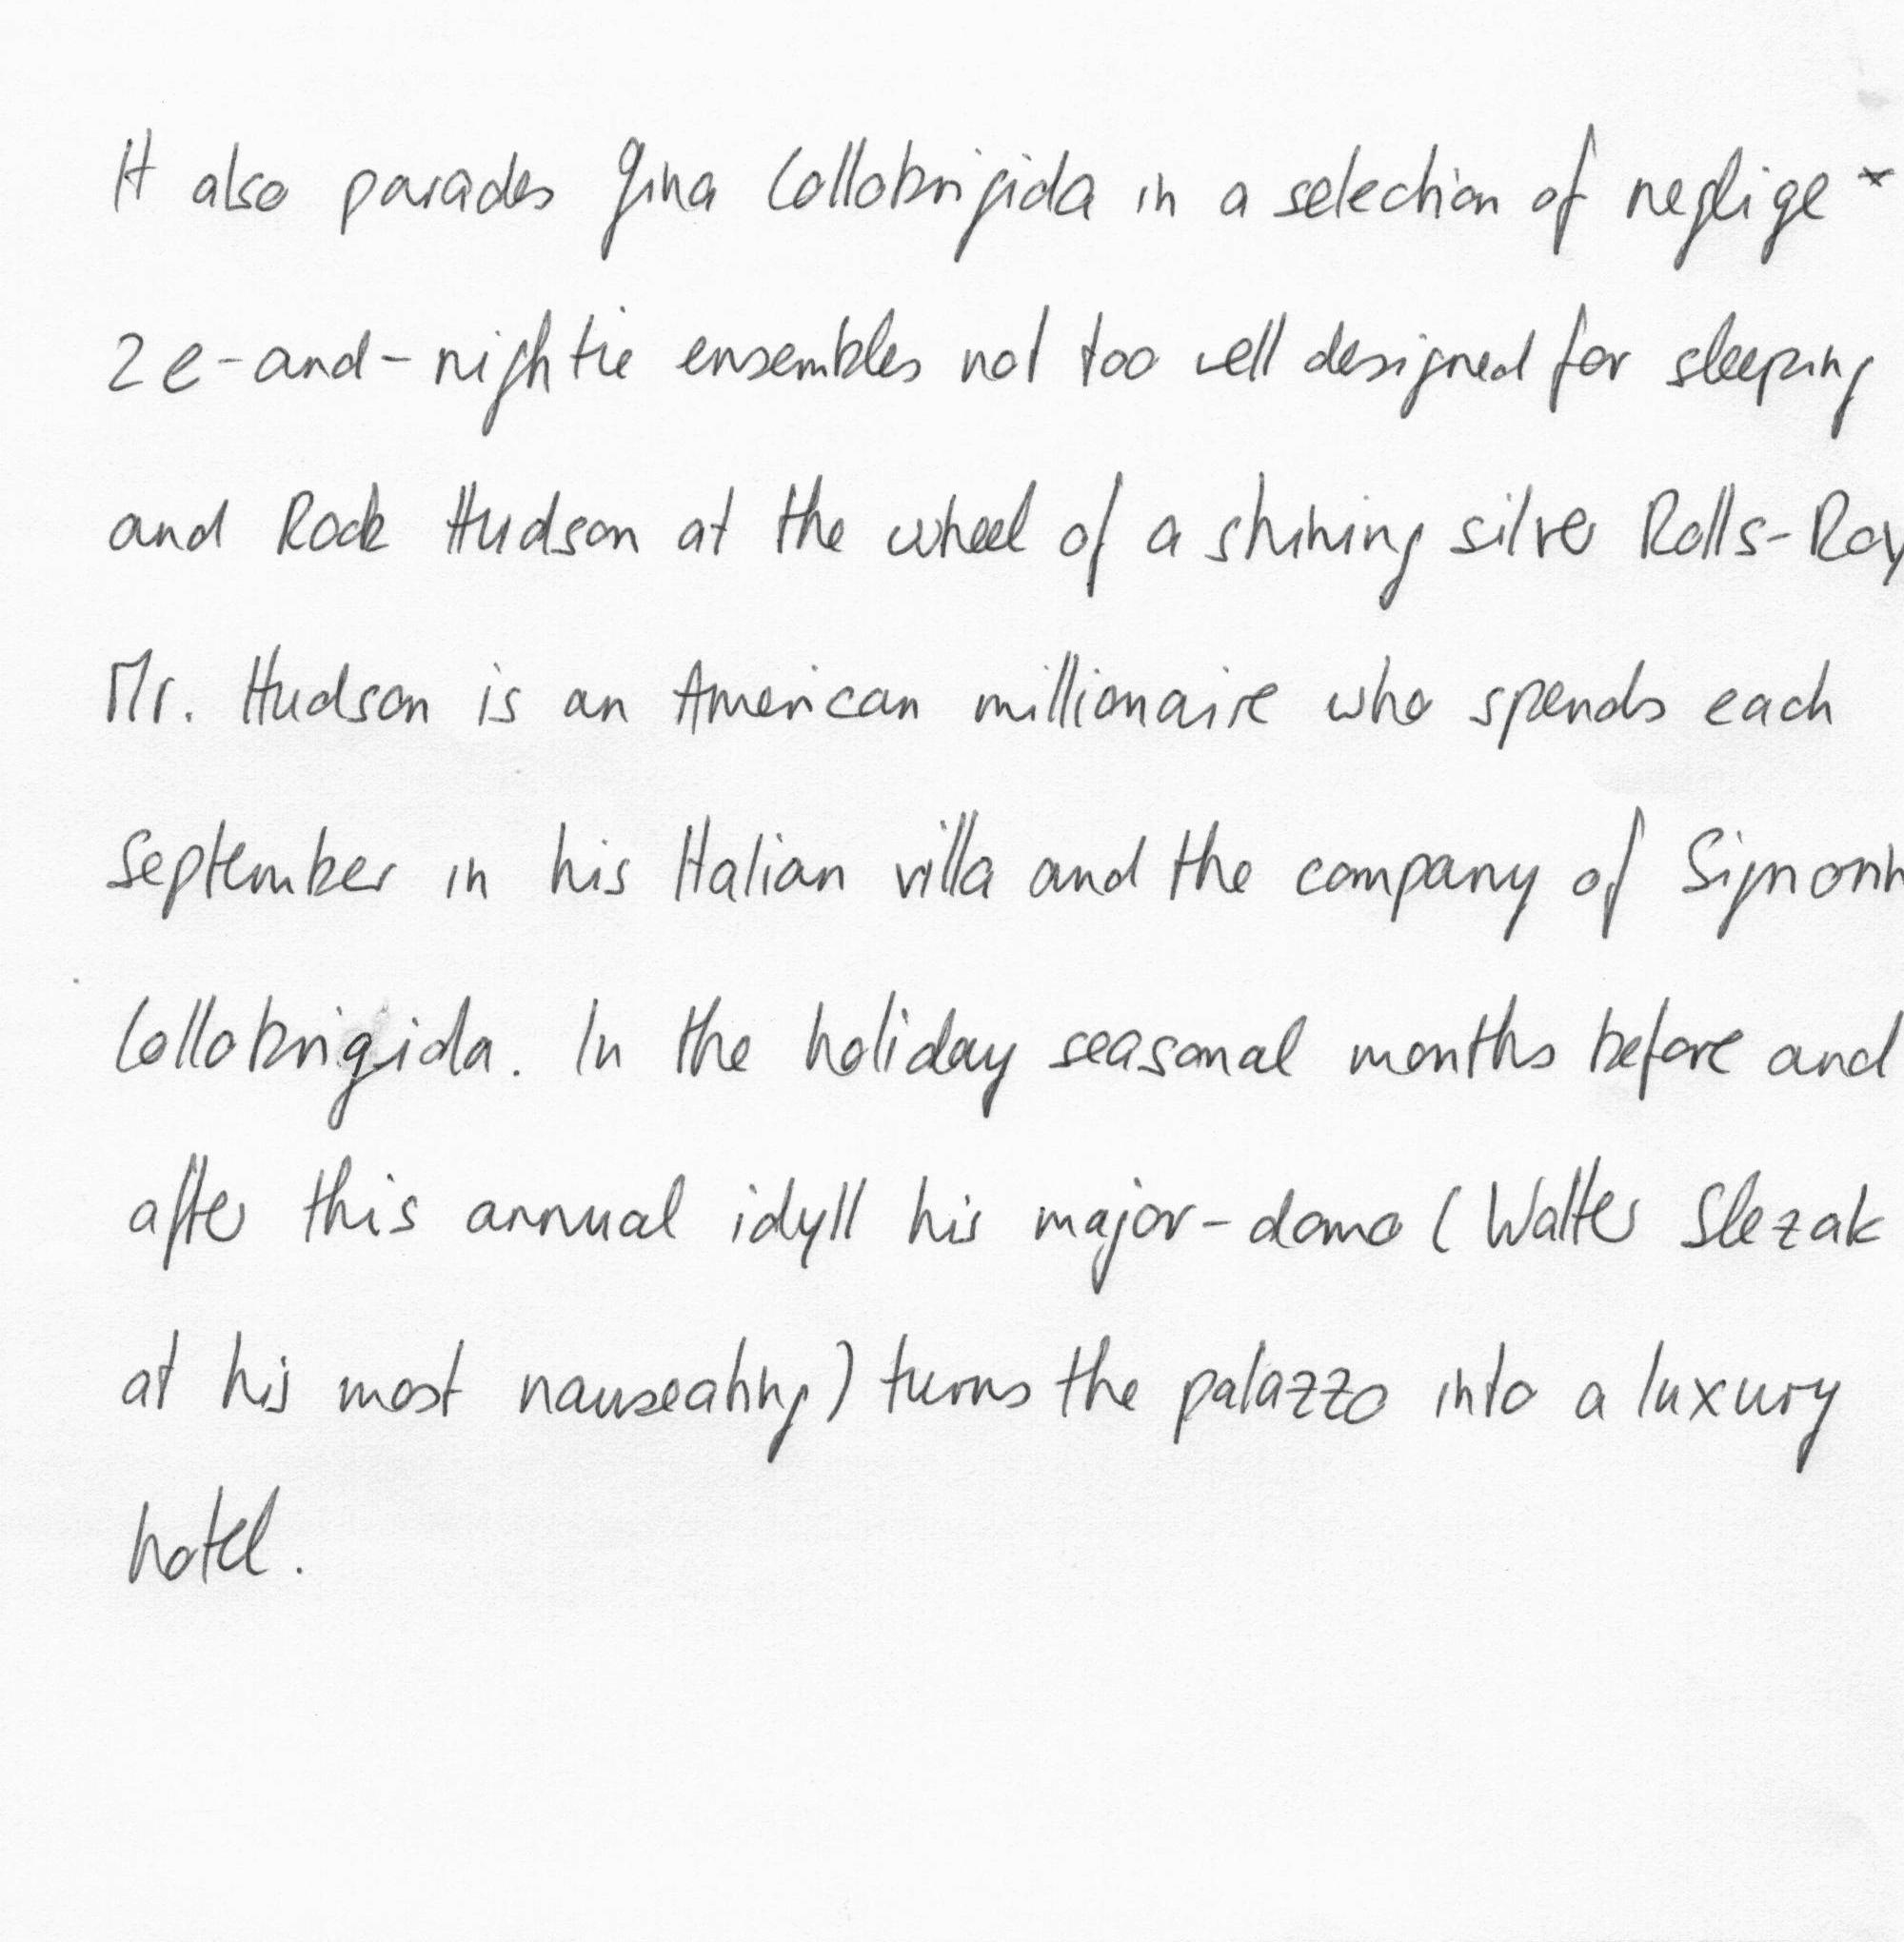 It also parades Gina Lollobrigida in a selection of neglige *
2e-and-nightie ensembles not too well designed for sleeping
and Rock Hudson at the wheel of a shining silver Rolls-Roy
Mr. Hudson is an American millionaire who spends each
September in his Italian villa and the company of Signorin
Lollobrigida. In the holiday seasonal months before and
after this annual idyll his major-domo (Walter Slezak
at his most nauseating) turns the palazzo into a luxury
hotel.